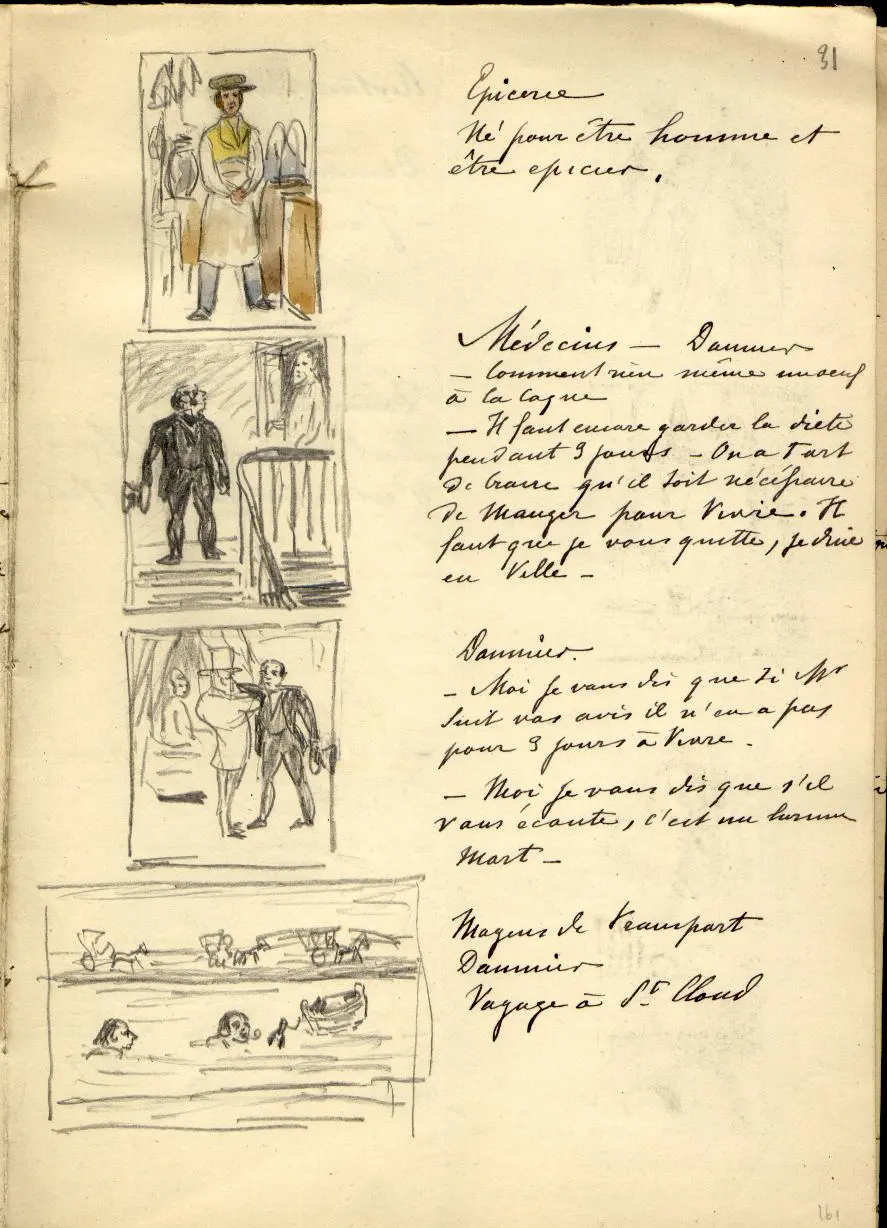 31
Epicerie
Né pour être homme et
être epicier.
Médecins — Daumier
— Comment rien même un oeuf
à la coque
— Il faut encore garder la diete
pendant 3 jours — On a tort
de croire qu'il soit nécéssaire
de manger pour vivre. Il
faut que je vous quitte, je dine
en Ville —
Daumier.
— Moi je vous dis que si Mr
suit vos avis il n'en a pas
pour 3 jours à vivre.
— Moi je vous dis que s'il
vous écoute, c'est un homme
mort —
Moyens de Transport
Daumier
Voyage à St Cloud
161